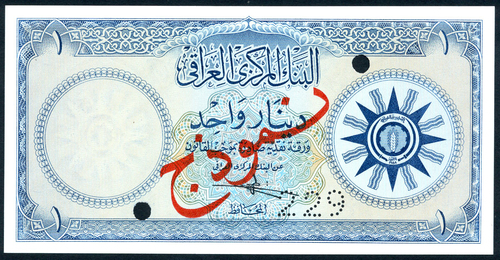 ١ ١
البنك المركزي العراقي
دينار واحد
ورقة نقدية صادرة بموجب القانون
عن البنك المركزي العراقي
المحافظ
نموذج
229
١ ١